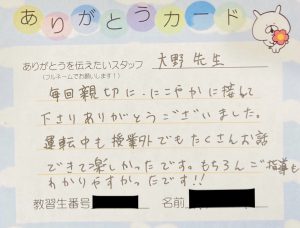 ありがとうカード
ありがとうを伝えたいスタッフ 大野先生
(フルネームでお願いします!)
毎回親切に、にこやかに接して
下さりありがとうございました。
運転中も授業外でもたくさんお話
できて楽しかったです。もちろんご指導も
わかりやすかったです!!
教習生番号 名前